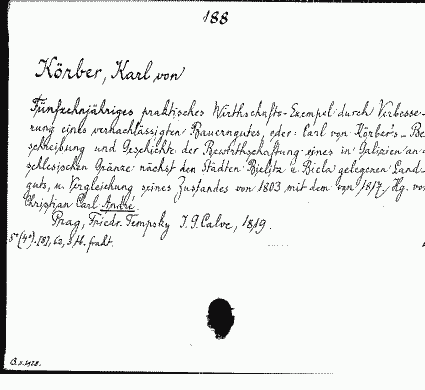 188
Körber, Karl von
Fünfzehnjähriges praktisches Wirthschafts-Exempel durch Verbesse-
rung eines vernachlässigten Bauerngutes, oder: Carl von Körber's Be
schreibung und Geschichte der Bewirthschaftung eines in Galizien an
schlesischen Gränze nächst den Städten Bielitz u. Biala gelegenen Land-
guts, u. Vergleichung seines Zustandes von 1803 mit dem von 1817, Hg. vo
Christian Carl André.
Prag, Friedr. Tempsky J. G. Calve, 1819.
8° (4°). [8], 60, frakt.